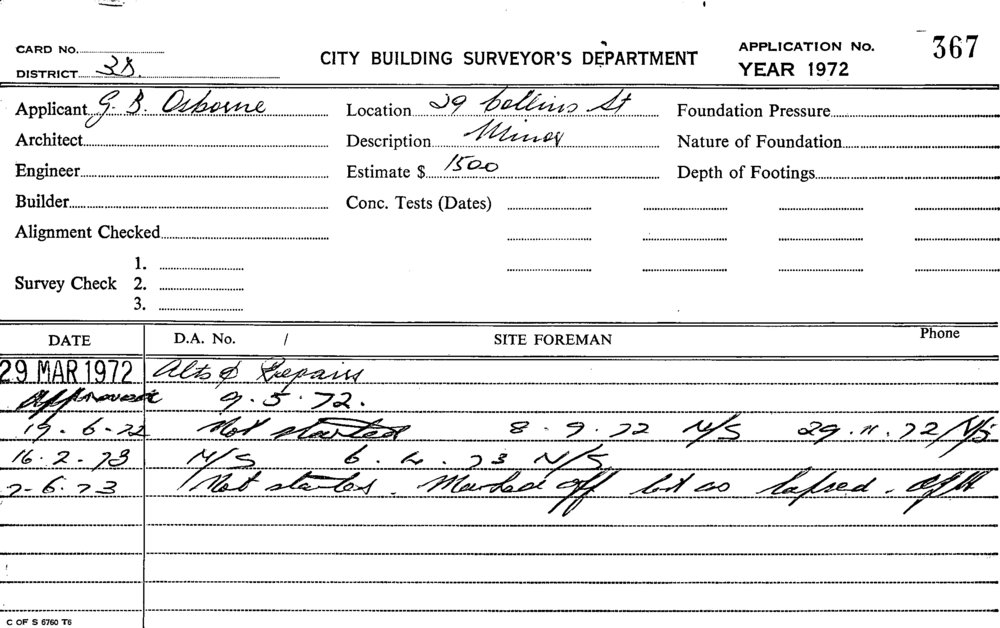 CARD No. APPLICATION No. 367
DISTRICT 3B. CITY BUILDING SURVEYOR'S DEPARTMENT YEAR 1972
Applicant G. B. Osborne Location 29 Collins St Foundation Pressure
Architect Description Minor Nature of Foundation
Engineer Estimate $ 1500 Depth of Footings
Builder Conc. Tests (Dates)
Alignment Checked
1.
Survey Check 2.
3.
DATE D.A. No. / SITE FOREMAN Phone
29 MAR 1972 Alts & Repairs
Approved 9.5.72.
19.6.72 Not started 8.9.72 N/S 29.11.72 N/S
16.2.73 N/S 6.4.73 N/S
7.6.73 Not started. Marked off as lapsed.
C OF S 6760 T6